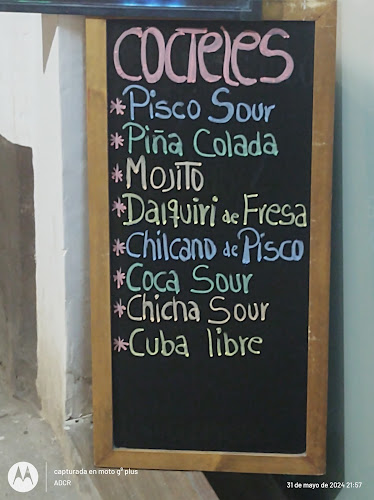 COCTELES
* Pisco Sour
* Piña Colada
* Mojito
* Daiquiri de Fresa
* Chilcano de Pisco
* Coca Sour
* Chicha Sour
* Cuba libre
capturada en moto g⁶ plus
AOCR
31 de mayo de 2024 21:57